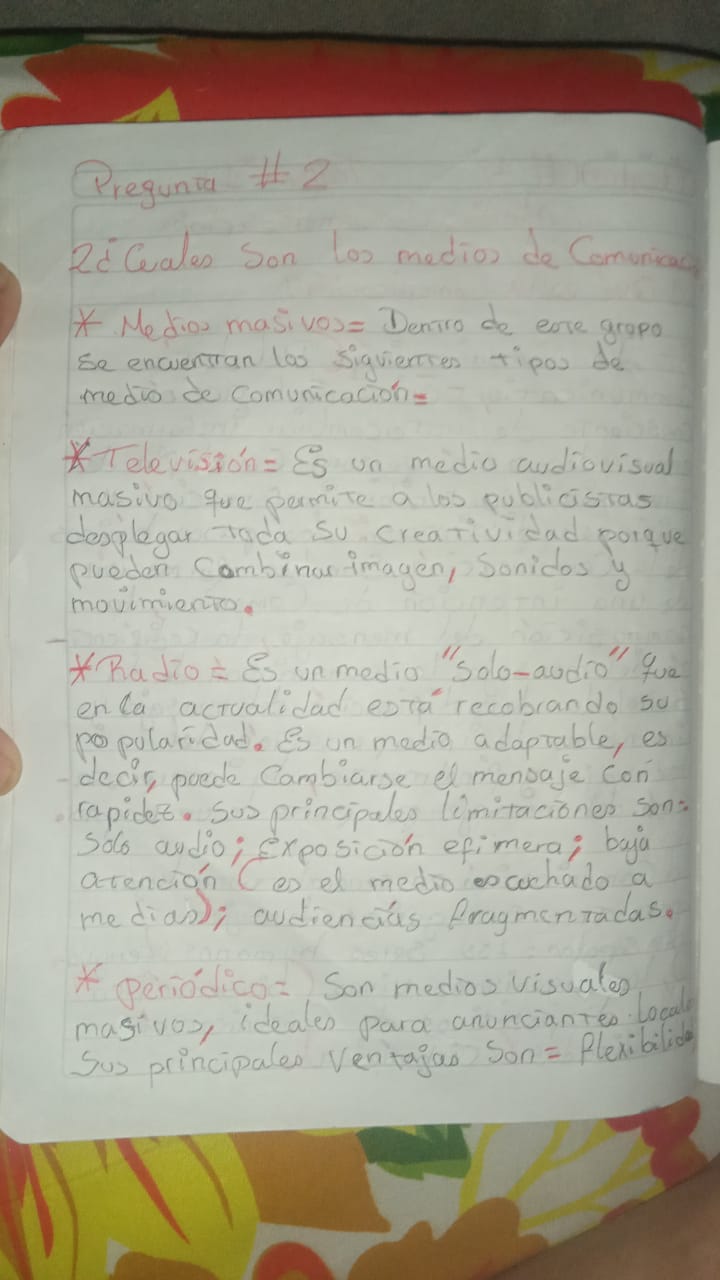 Pregunta #2
2¿Cuales Son los medios de Comunicac
* Medios masivos= Dentro de este grupo
se encuentran los siguientes tipos de
medio de Comunicación=
* Televisión= Es un medio audiovisual
masivo que permite a los publicistas
desplegar toda su creatividad porque
pueden Combinar imagen, Sonidos y
movimiento.
* Radio= Es un medio "Solo-audio" que
en la actualidad está recobrando su
popularidad. Es un medio adaptable, es
decir, puede Cambiarse el mensaje con
rapidez. Sus principales limitaciones son=
Solo audio; Exposición efimera; baja
atención (es el medio escuchado a
medias); audiencias fragmentadas.
* periódico= Son medios visuales
masivos, ideales para anunciantes locale
Sus principales ventajas Son= flexibilida